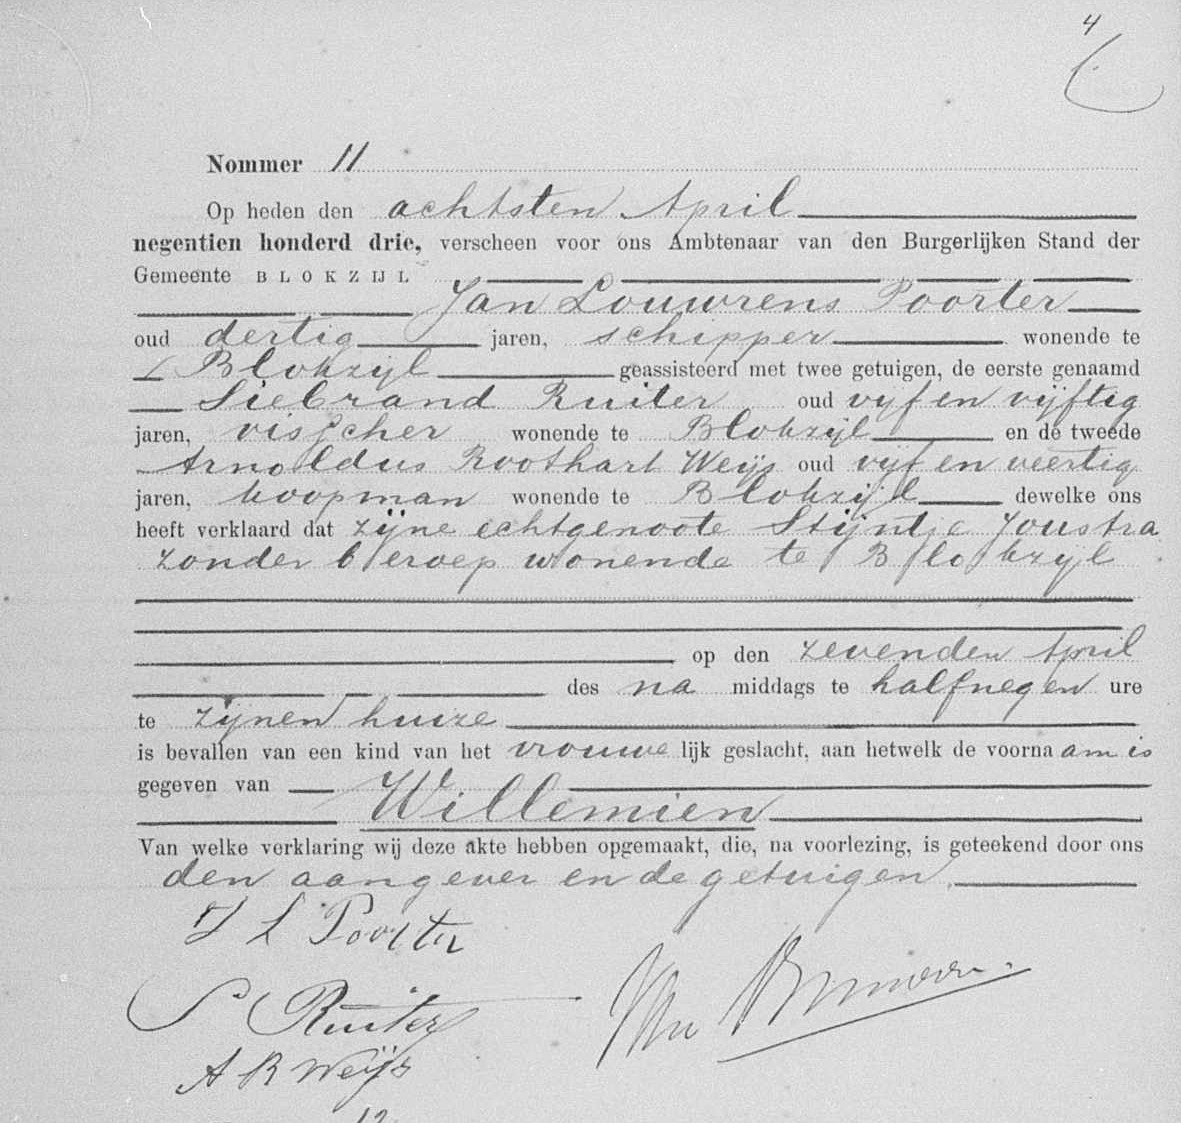 4
Nommer 11
Op heden den achtsten April
negentien honderd drie, verscheen voor ons Ambtenaar van den Burgerlijken Stand der
Gemeente BLOKZIJL
Jan Louwrens Poorter
oud dertig jaren, schipper wonende te
Blokzyl geassisteerd met twee getuigen, de eerste genaamd
Siebrand Ruiter oud vyf en vijftig
jaren, visscher wonende te Blokzijl en de tweede
Arnoldus Roothart Weijs oud vijf en veertig
jaren, koopman wonende te Blokzijl dewelke ons
heeft verklaard dat zijne echtgenoote Stijntje Joustra
zonder beroep wonende te Blokzyl
op den zevenden April
des na middags te halfnegen ure
te zijnen huize
is bevallen van een kind van het vrouwelijk geslacht, aan hetwelk de voornaam is
gegeven van Willemien
Van welke verklaring wij deze akte hebben opgemaakt, die, na voorlezing, is geteekend door ons
den aangever en de getuigen.
J L Poorter
S Ruiter
A R Weijs
12